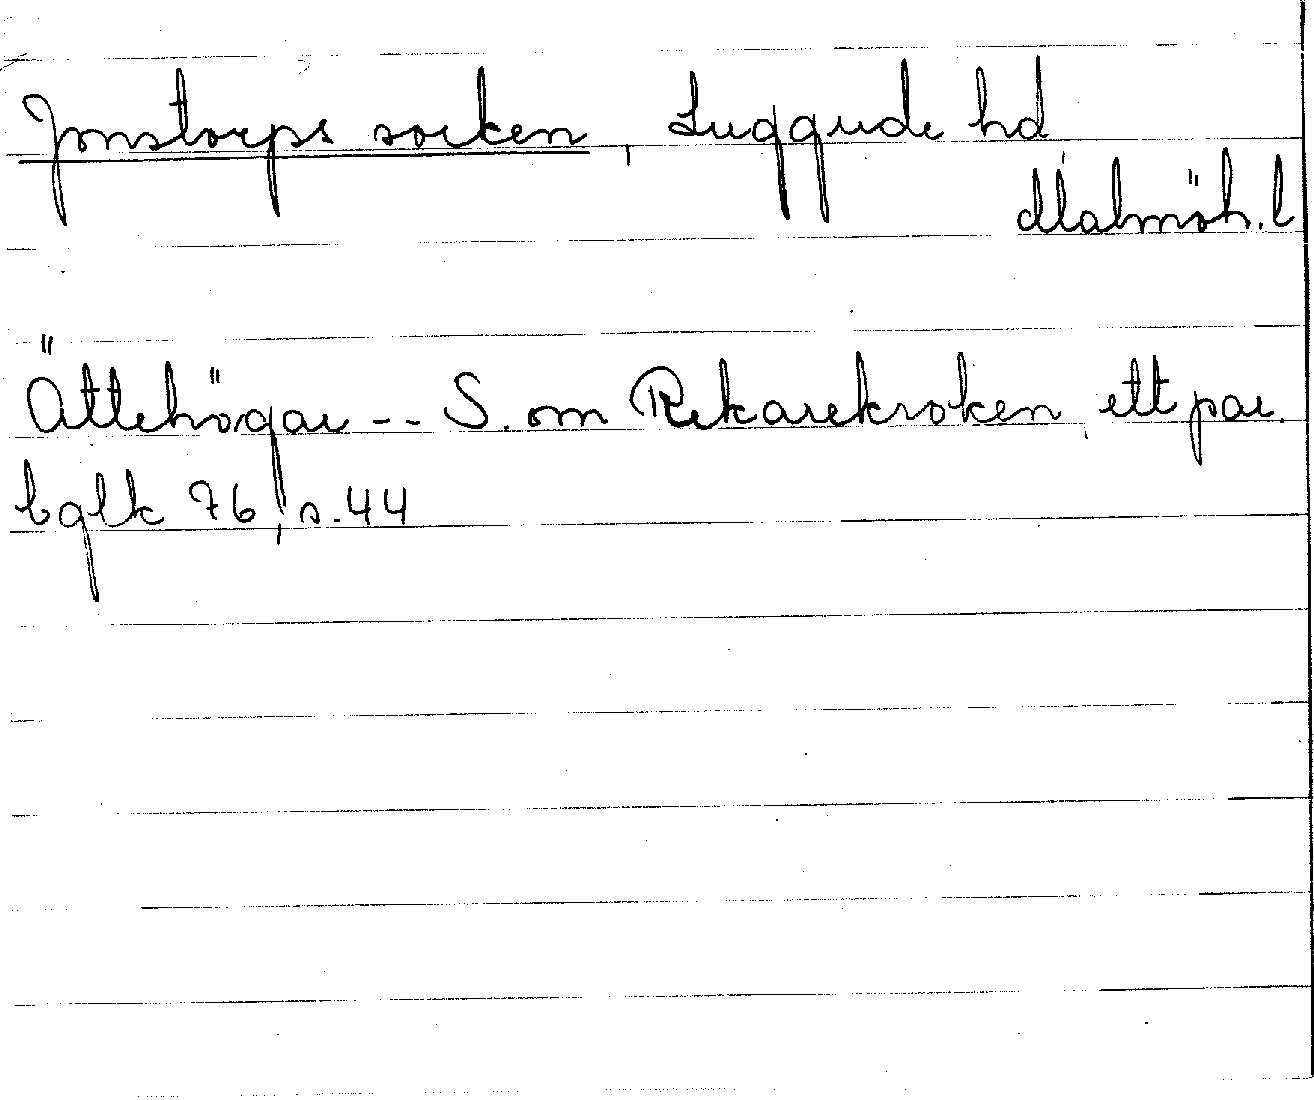 Jonstorps socken, Luggude hd
Malmöh. l
Ättehögar -- S. om Rekarekroken, ett par.
bglk 76, s. 44